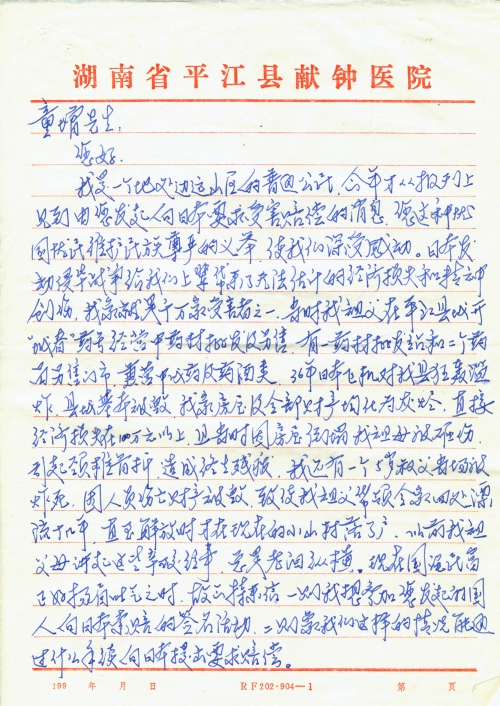 湖南省平江县献钟医院
童增先生:
您好.
我是一个地处边远山区的普通公民,今年才从报刊上
见到由您发起人向日本要求受害赔偿的消息,您这种为
国为民维护民族尊严的义举,使我们深受感动。日本发
动侵华战争给我们上辈带来了无法估计的经济损失和精神
创伤,我家就是千万家受害者之一,当时我祖父在平江县城开
"春"药号经营中药材批发及另售,有一药材批发部和二个药
店另售门市,兼营中成药及药酒类,36年日本飞机对我县狂轰滥
炸,县城基本被毁,我家房屋及全部财产均化为灰烬,直接
经济损失在100万元以上,且当时因房屋倒塌我祖母被砸伤,
引起颈椎骨折,造成终生残疾,我还有一个5岁叔父当场被
炸死,因人员伤亡财产被毁,致使我祖父带领全家四处漂
流十几年,直至解放时才在现在的小山村落了户,以前我祖
父母讲起这些辛酸往事,总是老泪纵横。现在国运昌
正好扬眉吐气之时,故而特来信一则我想参加您发起的国
人向日本索赔的签名活动,二则象我们这样的情况能通
过什么手续向日本提出要求赔偿。
199 年 月 日 RF202·904—1 第 页